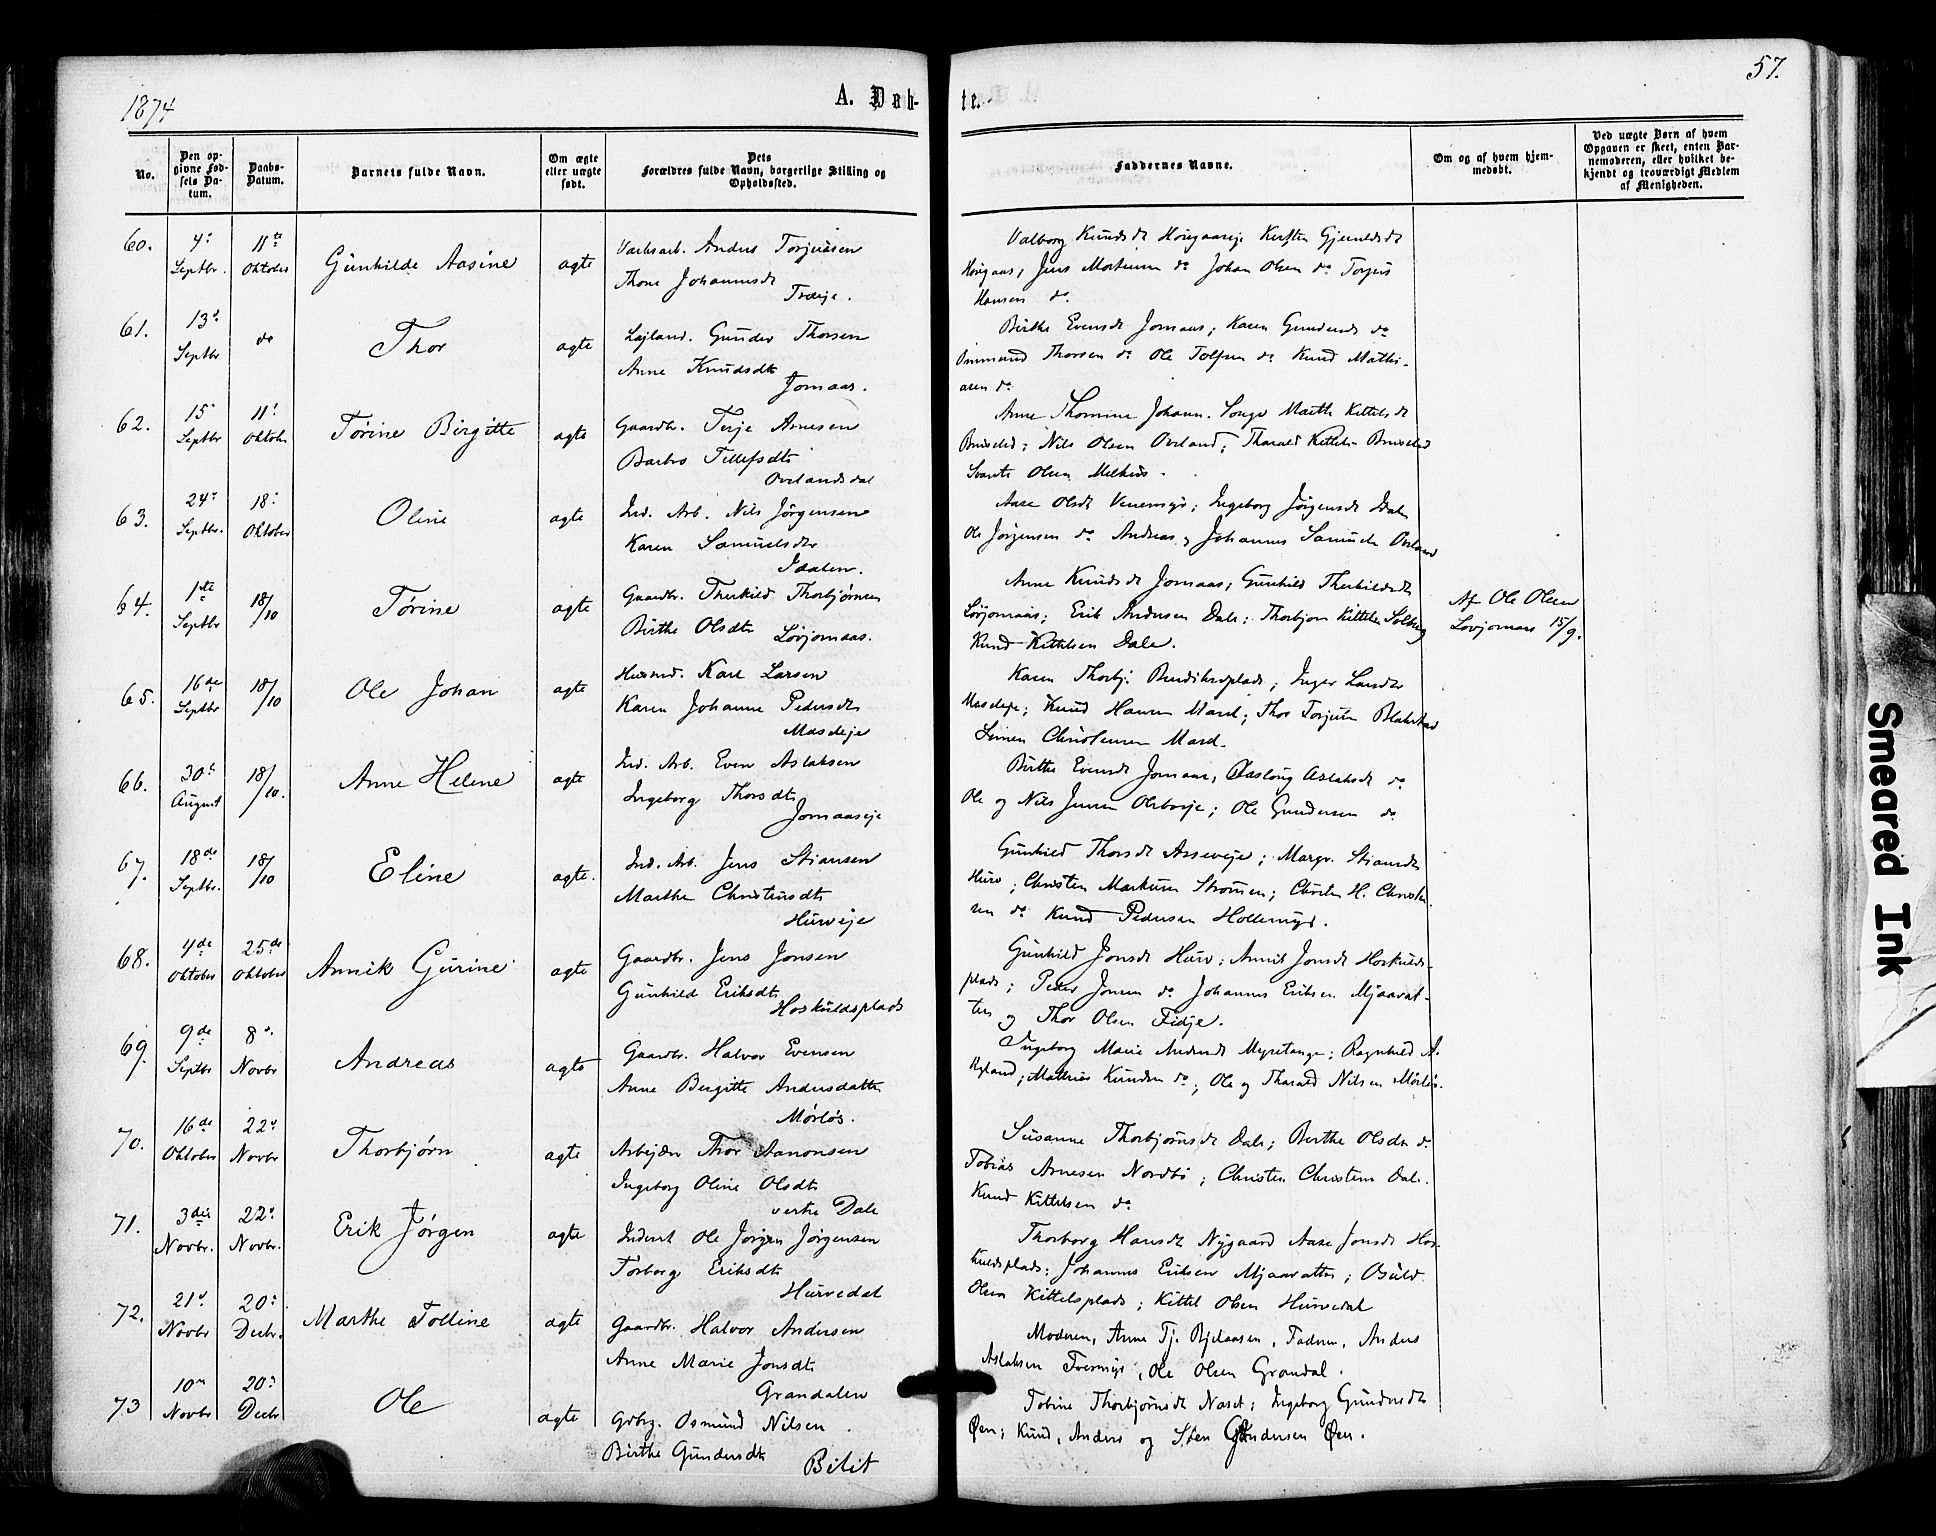 1874
A. Døb-
te.
57.
No.
Den op-
givne Fød-
sels Da-
tum.
Daabs-
Datum.
Barnets fulde Navn.
Om ægte
eller uægte
født.
Dets
Forældres fulde Navn, borgerlige Stilling og
Opholdssted.
Faddernes Navne.
Om og af hvem hjem-
medøbt.
Ved uægte Børn af hvem
Opgaven er skeet, enten Bar-
nemoderen, eller hvilket be-
kjendt og troværdigt Medlem
af Menigheden.
60.
4.
Septbr.
11te
Oktober
Gunhilde Aasine
ægte
Anders Torjussen
Thone Johannesdt
Valborg Knudsdt Kirsten
Jens Mortensen do Johan Olsen do Torjus
Hansen do
61.
13.
Septbr
do
Thor
ægte
Gunder Thorsen
Anne Knudsdt
Jomaas.
Birthe Evensdt Jomaas; Karen Gundersdt do
Osmund Thorsen do Ole Tolfsen do Knud Mathi-
asen do
62.
15
Septbr
11.
Oktober
Tørine Birgitte
ægte
Gaardbr. Terje Arnesen
Barbro Tellefsdt
Overlandsdal
Anne Thomine Johann. Songe Marthe Kittelsdt
Nils Olsen Overland; Tharald Kittels
Olsen
63.
24.
Septbr.
18.
Oktober
Oline
ægte
Ind. Arb. Nils Jørgensen
Karen Samuelsdtr
Idalen.
Aase Olsdt Venemyr; Ingeborg Jørgensdt Idal
Ole Jørgensen do Andreas og Johannes Samuels Overland
64.
1ste
Septbr
18/10
Tørine
ægte
Gaardbr. Therkild Thorbjørnsen
Birthe Olsdtr
Lørjomaas.
Anne Knudsdt Jomaas; Gunhild Therkildsdt
Lørjomaas; Erik Andersen Dale; Thorbjørn Kittelsen Solberg
Knud Kittelsen Dale.
Af Ole Olsen
Lovjomaas 15/9.
65.
16de
Septbr
18/10
Ole Johan
ægte
Husmd. Karl Larsen
Karen Johanne Pedersdt
Masdeje
Karen Thorbj. Bendiksplads; Inger Larsdtr
Masdeje; Knud Hansen Mard; Thor Torjusen Blakstad
Simen Christensen Mard.
66.
30.
August
18/10.
Anne Helene
ægte
Ind. Arb. Even Aslaksen
Ingeborg Thorsdt
Jomaaseje
Birthe Evensdt Jomaas, Aaslaug Aslaksdt do
Ole og Nils Jensen Ole Gundersen do
67.
18de
Septbr.
18/10
Eline
ægte.
Ind. Arb. Jens Stiansen
Marthe Christensdt
Hurveje
Gunhild Thorsdt Margr. Stiansdt
Hurv; Christen Markusen Strømen; Christen H. Christen-
sen do Knud Pedersen Hollemyr.
68.
4de
Oktober
25de
Oktober
Annik Gurine
ægte
Gaardbr. Jens Jonsen
Gunhilde Eriksdt
Hoskuldsplads
Gunhild Jonsdt Hurv; Annik Jonsdt Hoskulds-
plads; Peder Jonsen do Johannes Eriksen Mjaavat-
ten og Thor Olsen Fidje.
69.
9de
Septbr
8.
Novbr
Andreas
ægte
Gaardbr. Halvor Evensen
Anne Birgitte Andersdatter
Mørløs.
Ingeborg Marie Andersdt Myretange; Ragnhild A.
Mathias Knudsen do; Ole og Tharald Nilsen Mørløs.
70.
16de
Oktober
22.
Novbr
Thorbjørn
ægte
Thor Aanonsen
Ingeborg Oline Olsdt
vestre Dale
Susanne Thorbjørnsdt Dale; Berthe Olsdtr do
Tobias Arnesen Nordbø; Christen Christensen Dale.
Knud Kittelsen do
71.
3die
Novbr.
22.
Novbr.
Erik Jørgen
ægte
Inderst Ole Jørgen Jørgensen
Torborg Eriksdt
Hurvedal
Thorborg Hansdt Nygaard Aase Jonsdt Hos-
kuldsplads; Johannes Eriksen Mjaavatten; Osuld
Olsen Kittelsplads; Kittel Olsen Hurvedal
72.
21.
Novbr
20.
Decbr.
Marthe Tolline
ægte
Gaardbr. Halvor Andersen
Anne Marie Jonsdt
Grandalen
Moderen, Anne Tj. Faderen, Anders
Aslaksen Tveremyr; Ole Olsen Grandal.
73
10
Novbr
20.
Decbr
Ole
ægte
Gdbrg. Osmund Nilsen
Birthe Gundersdt
Bilit
Tobine Thorbjørnsdt Naset; Ingeborg Gundersdt
Øen; Knud, Anders og Sten Gundersen Øen.
Smeared Ink